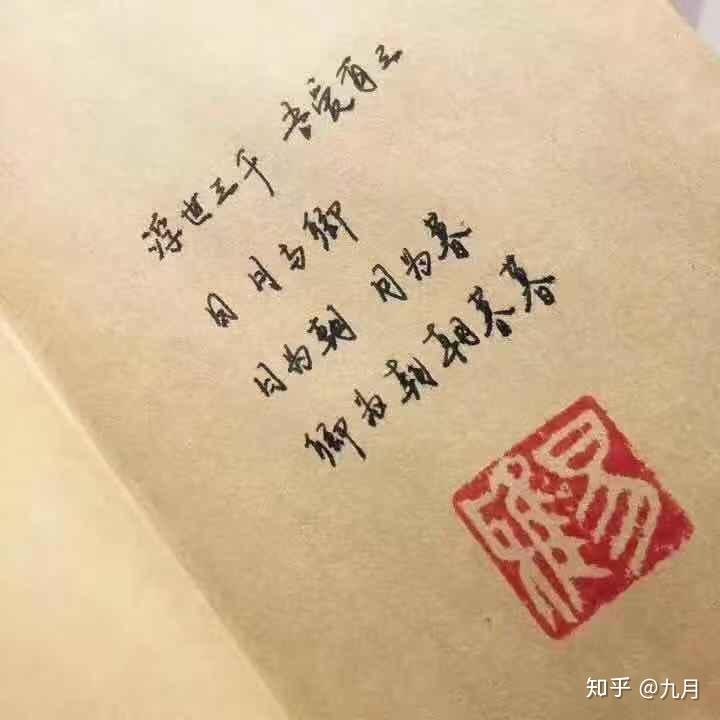 浮世三千 吾爱有三
日月与卿
日为朝 月为暮
卿为朝朝暮暮
易
知乎 @九月